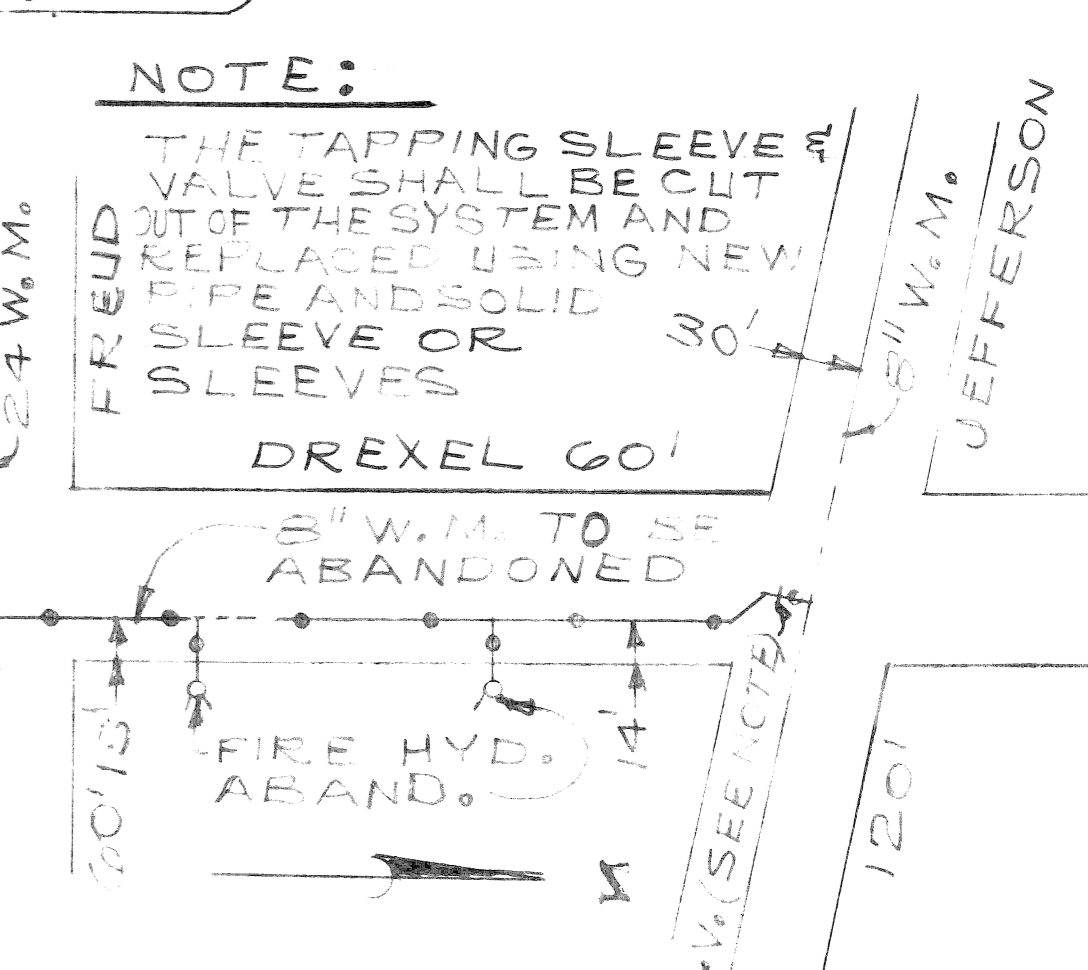 NOTE:
THE TAPPING SLEEVE &
VALVE SHALL BE CUT
OUT OF THE SYSTEM AND
REPLACED USING NEW
PIPE AND SOLID
SLEEVE OR
SLEEVES
24 W.M.
FREUD
30'
8" W.M.
JEFFERSON
DREXEL 60'
8" W.M. TO BE
ABANDONED
FIRE HYD.
ABAND.
60'
14'
V. (SEE NOTE)
120'
N